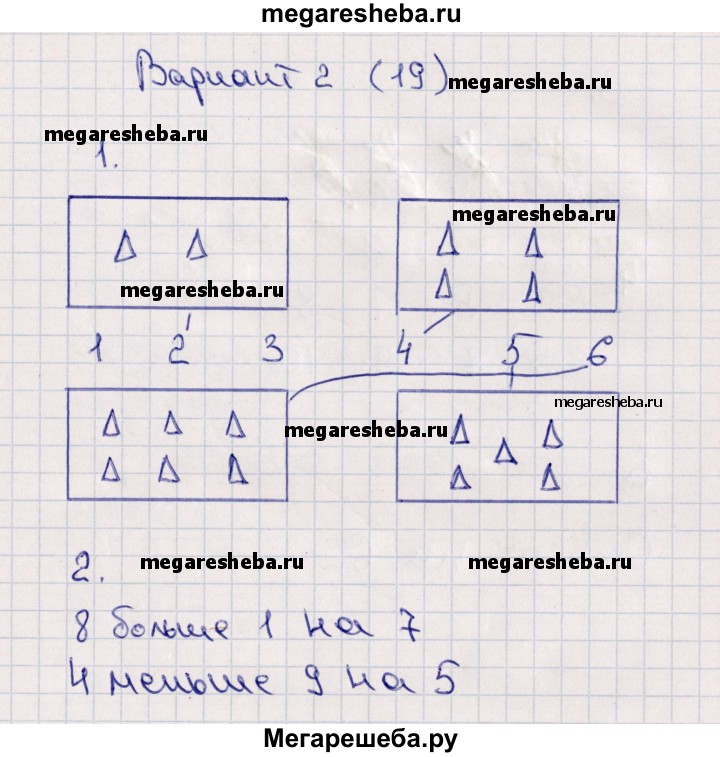 megaresheba.ru
Вариант 2 (19) megaresheba.ru
megaresheba.ru
1.
megaresheba.ru
megaresheba.ru
1 2 3 4 5 6
megaresheba.ru
megaresheba.ru
2. megaresheba.ru megaresheba.ru
8 больше 1 на 7
4 меньше 9 на 5
Мегарешеба.ру